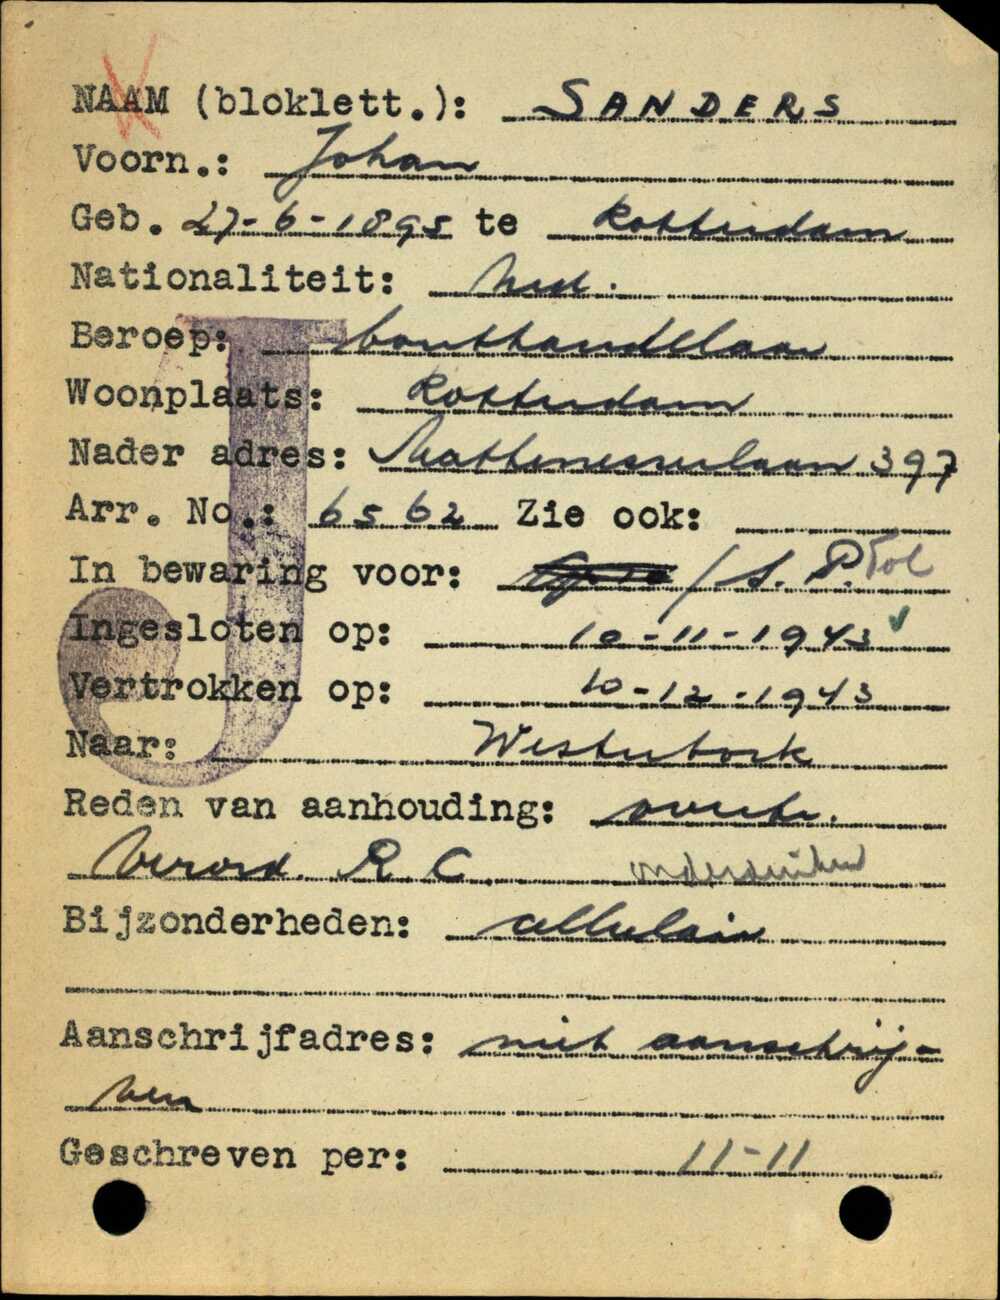 NAAM (bloklett.): SANDERS
Voorn.: Johan
Geb. 27-6-1895 te Rotterdam
Nationaliteit: Ned.
Beroep: houthandelaar
Woonplaats: Rotterdam
Nader adres: Mathenesserlaan 397
Arr. No.: 6562 Zie ook:
In bewaring voor: / S. P.
Ingesloten op: 10-11-1943
Vertrokken op: 10-12-1943
Naar: Westerbork
Reden van aanhouding: overtr.
Verord. R.C. onderduiken
Bijzonderheden: cellulair
Aanschrijfadres: niet aanschrij-
ven
Geschreven per: 11-11
J